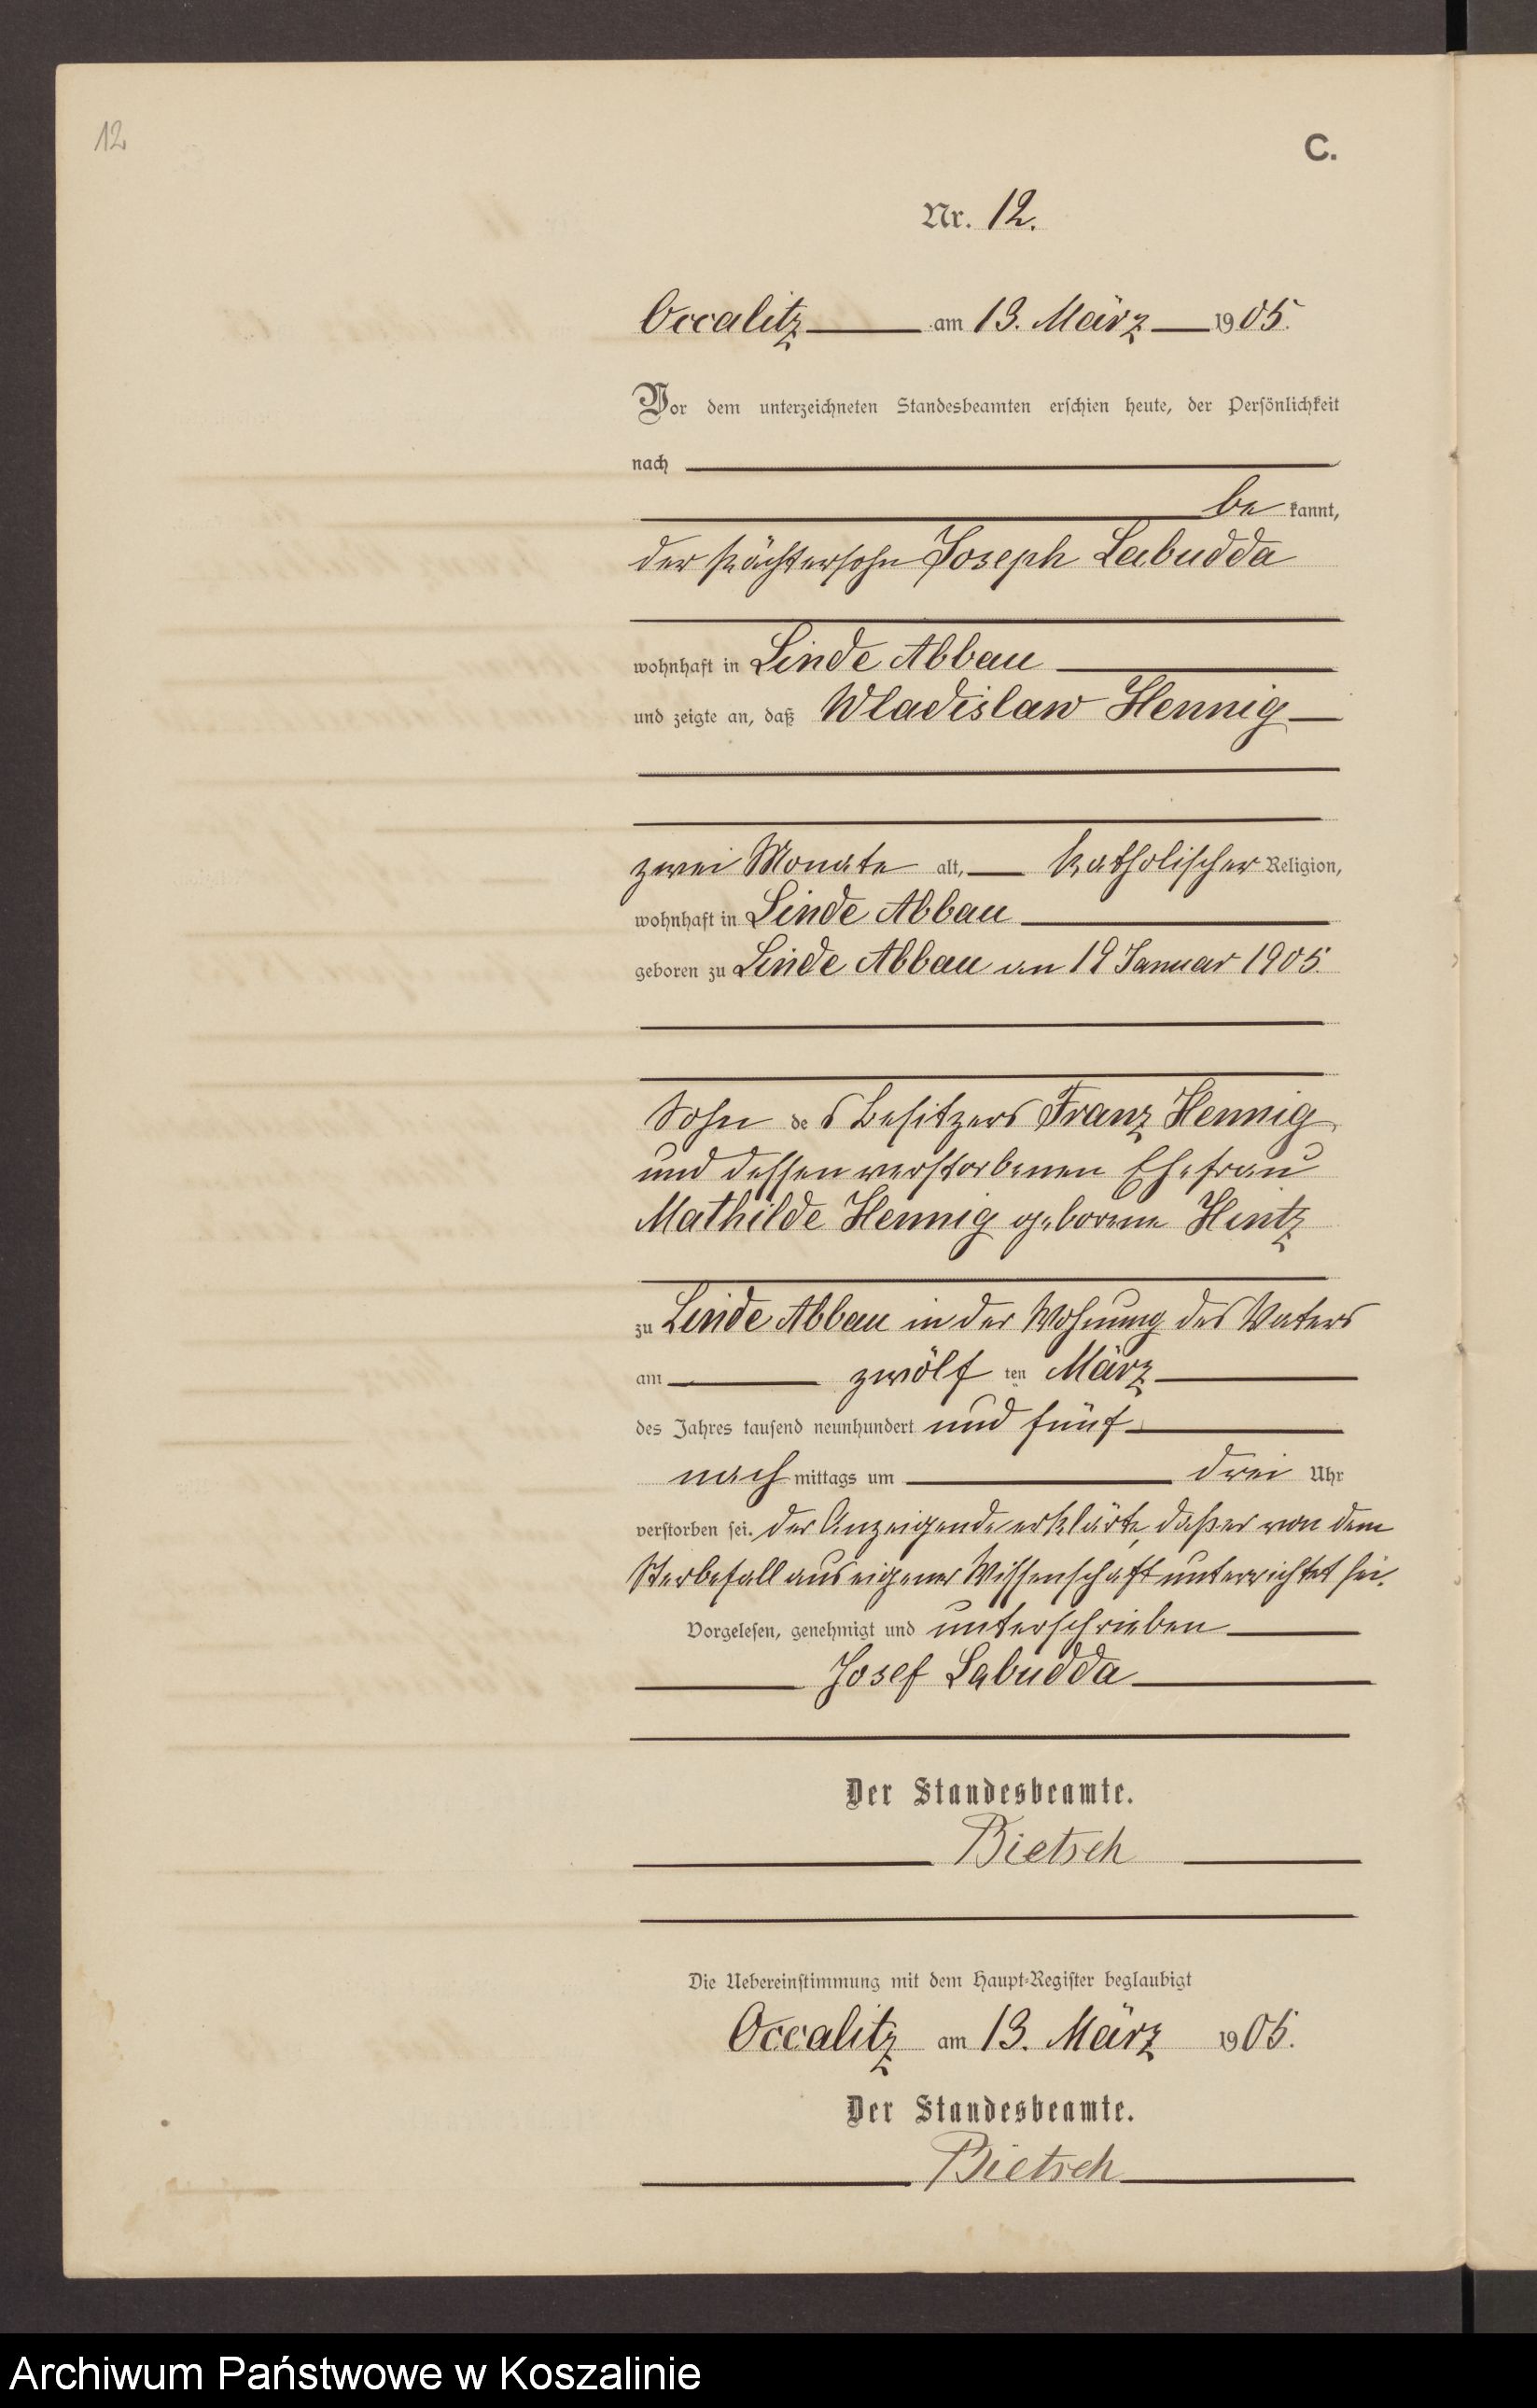 12
C.
Nr. 12.
Occalitz am 13. März 1905.
Vor dem unterzeichneten Standesbeamten erschien heute, der Persönlichkeit
nach
be kannt,
der Pächtersohn Joseph Labudda
wohnhaft in Linde Abbau
und zeigte an, daß Wladislaw Hennig
zwei Monate alt, katholischer Religion,
wohnhaft in Linde Abbau
geboren zu Linde Abbau am 19 Januar 1905.
Sohn des Besitzers Franz Hennig
und dessen verstorbenen Ehefrau
Mathilde Hennig geborene Hintz
zu Linde Abbau in der Wohnung des Vaters
am zwölf ten März
des Jahres tausend neunhundert und fünf
nach mittags um drei Uhr
verstorben sei. Der Anzeigende erklärte, daß er von dem
Sterbefall aus eigener Wissenschaft unterrichtet sei.
Vorgelesen, genehmigt und unterschrieben
Josef Labudda
Der Standesbeamte.
Bietsch
Die Uebereinstimmung mit dem Haupt-Register beglaubigt
Occalitz am 13. März 1905.
Der Standesbeamte.
Bietsch
Archiwum Państwowe w Koszalinie